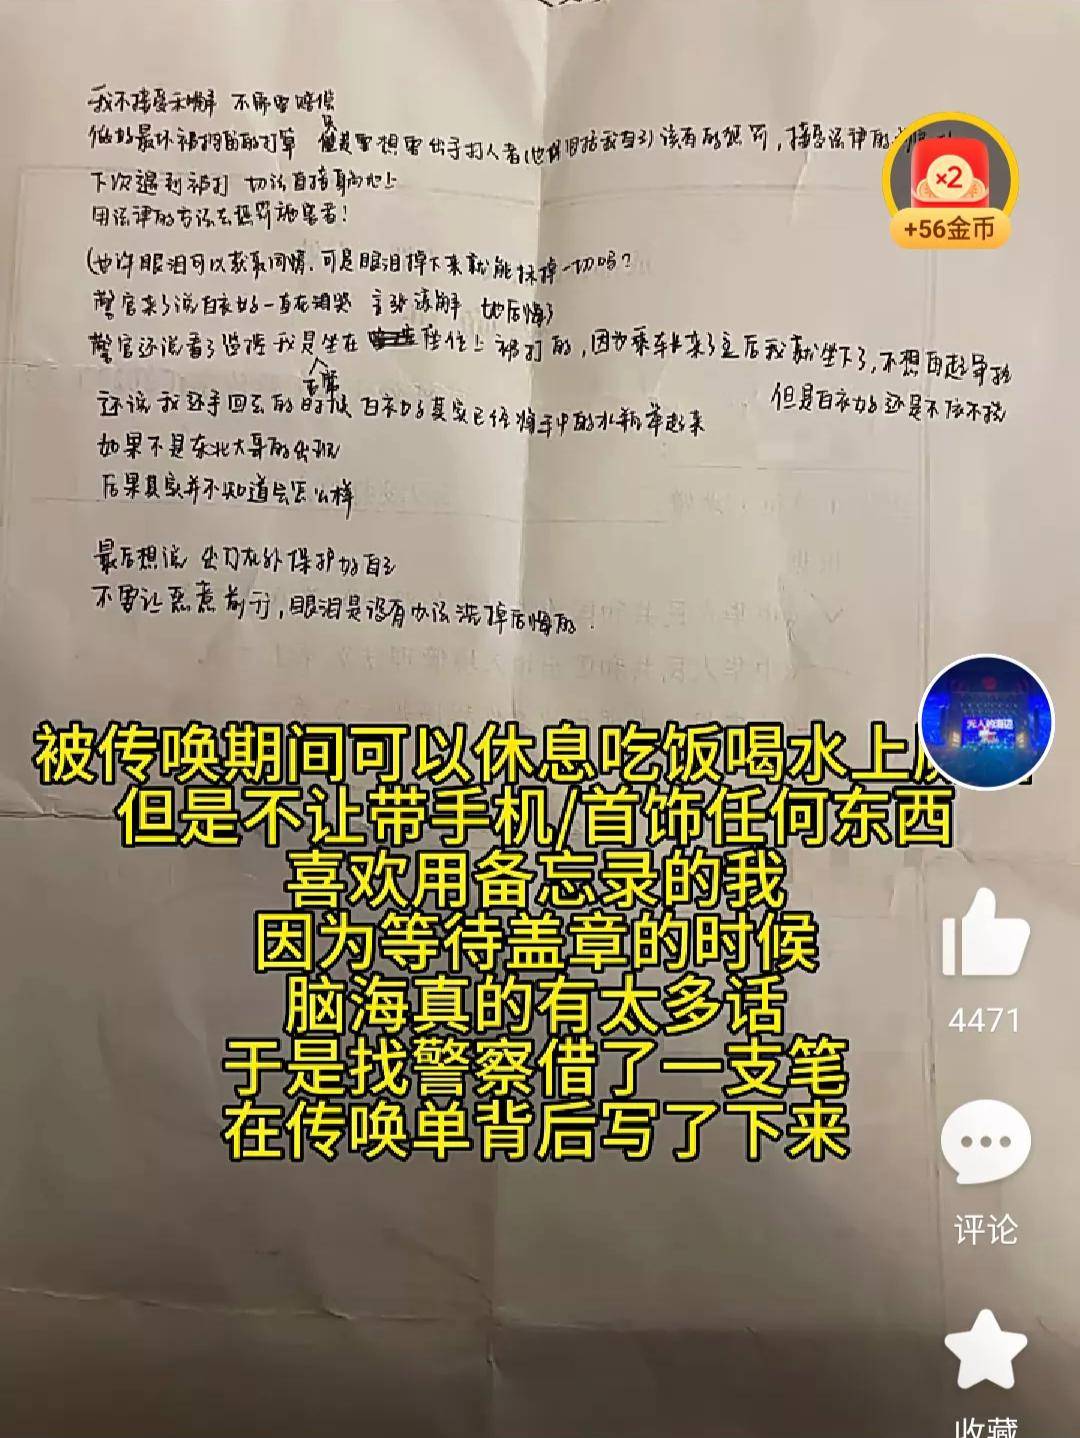 我不接受和解 不需要赔偿
做好最坏被拘留的打算 只是要想要出手打人者(也许包括我自己)该有的惩罚，接受法律的
下次遇到被打 切记直接躺地上
用法律的方法去惩罚施害者！
(也许眼泪可以获取同情，可是眼泪掉下来就能抹掉一切吗？
警官来了说白衣女一直在狂哭 主张谅解 她后悔了
警官还说看了监控我是坐在座位上被打的，因为乘车长来了之后我就坐下了，不想再起争执
但是白衣女还是不依不挠
还说我还手回去的时候白衣女其实已经将手中的水瓶举起来
如果不是东北大哥的出现
后果其实并不知道会怎么样
最后想说 出门在外保护好自己
不要让恶意前行，眼泪是没有办法洗掉后悔的.
×2
+56金币
无人的海边
被传唤期间可以休息吃饭喝水上
但是不让带手机/首饰任何东西
喜欢用备忘录的我
因为等待盖章的时候
脑海真的有太多话
于是找警察借了一支笔
在传唤单背后写了下来
4471
评论
收藏